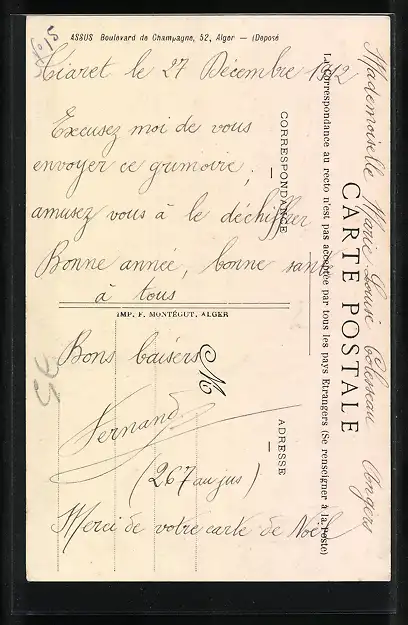 ASSUS Boulevard de Champagne, 52, Alger — (Déposé
Tiaret le 27 Décembre 1912
Excusez moi de vous
envoyer ce grimoire,
amusez vous à le déchiffrer
Bonne année, bonne santé
à tous
IMP. F. MONTÉGUT, ALGER
Bons baisers
Fernand
(267 au jus)
Merci de votre carte de Noël
CORRESPONDANCE
ADRESSE
La Correspondance au recto n'est pas acceptée par tous les pays Etrangers (Se renseigner à la Poste)
CARTE POSTALE
M
Mademoiselle Marie Louise Angers